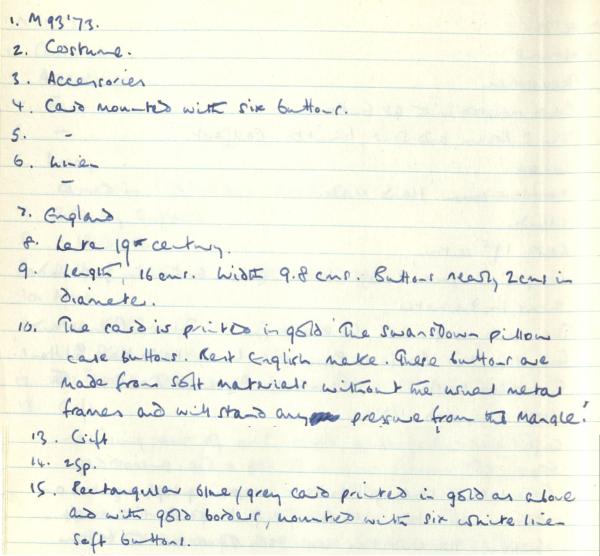 1. M93'73.
2. Costume.
3. Accessories
4. Card mounted with six buttons.
5. -
6. Linen
-
7. England
8. Late 19th century.
9. Length, 16 cms. Width 9.8 cms. Buttons nearly 2cms in
diameter.
10. The card is printed in gold 'The Swansdown pillow
case buttons. Best English make. These buttons are
made from soft materials without the usual metal
frames and will stand any pressure from the Mangle.'
13. Gift
14. 25p.
15. Rectangular blue/grey card printed in gold as above
and with gold border, mounted with six white linen
soft buttons.